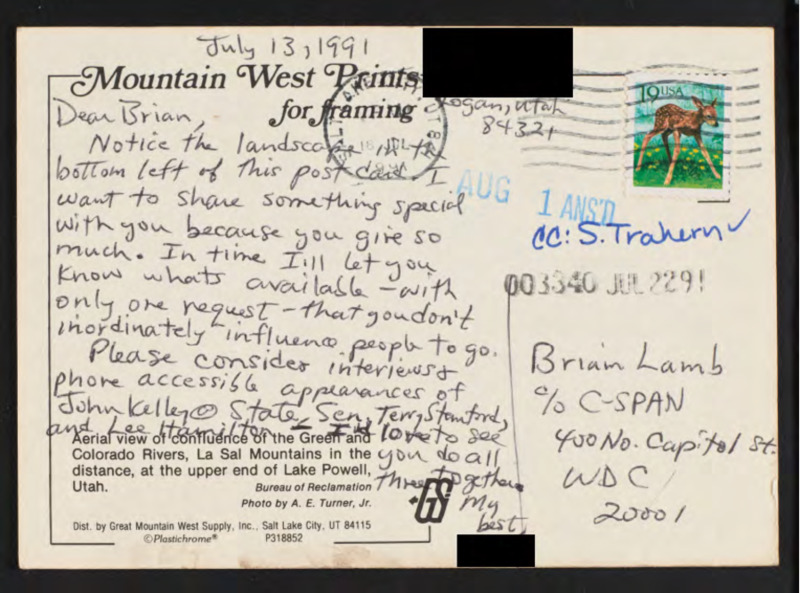 July 13, 1991
Mountain West Prints
for framing
Logan, Utah
84321
19 USA
Dear Brian,
Notice the landscape in the
bottom left of this post card. I
want to share something special
with you because you give so
much. In time I'll let you
know whats available - with
only one request - that you don't
inordinately influence people to go.
Please consider interviews &
phone accessible appearances of
John Kelley @ State, Sen. Terry Stanford,
and Lee Hamilton - I'd love to see
you do all
three together
My
best,
AUG 1 ANS'D
CC: S. Trahern ✓
003340 JUL 22 91
Brian Lamb
c/o C-SPAN
400 No. Capitol St.
WDC
20001
Aerial view of confluence of the Green and
Colorado Rivers, La Sal Mountains in the
distance, at the upper end of Lake Powell,
Utah.
Bureau of Reclamation
Photo by A. E. Turner, Jr.
Dist. by Great Mountain West Supply, Inc., Salt Lake City, UT 84115
©Plastichrome® P318852